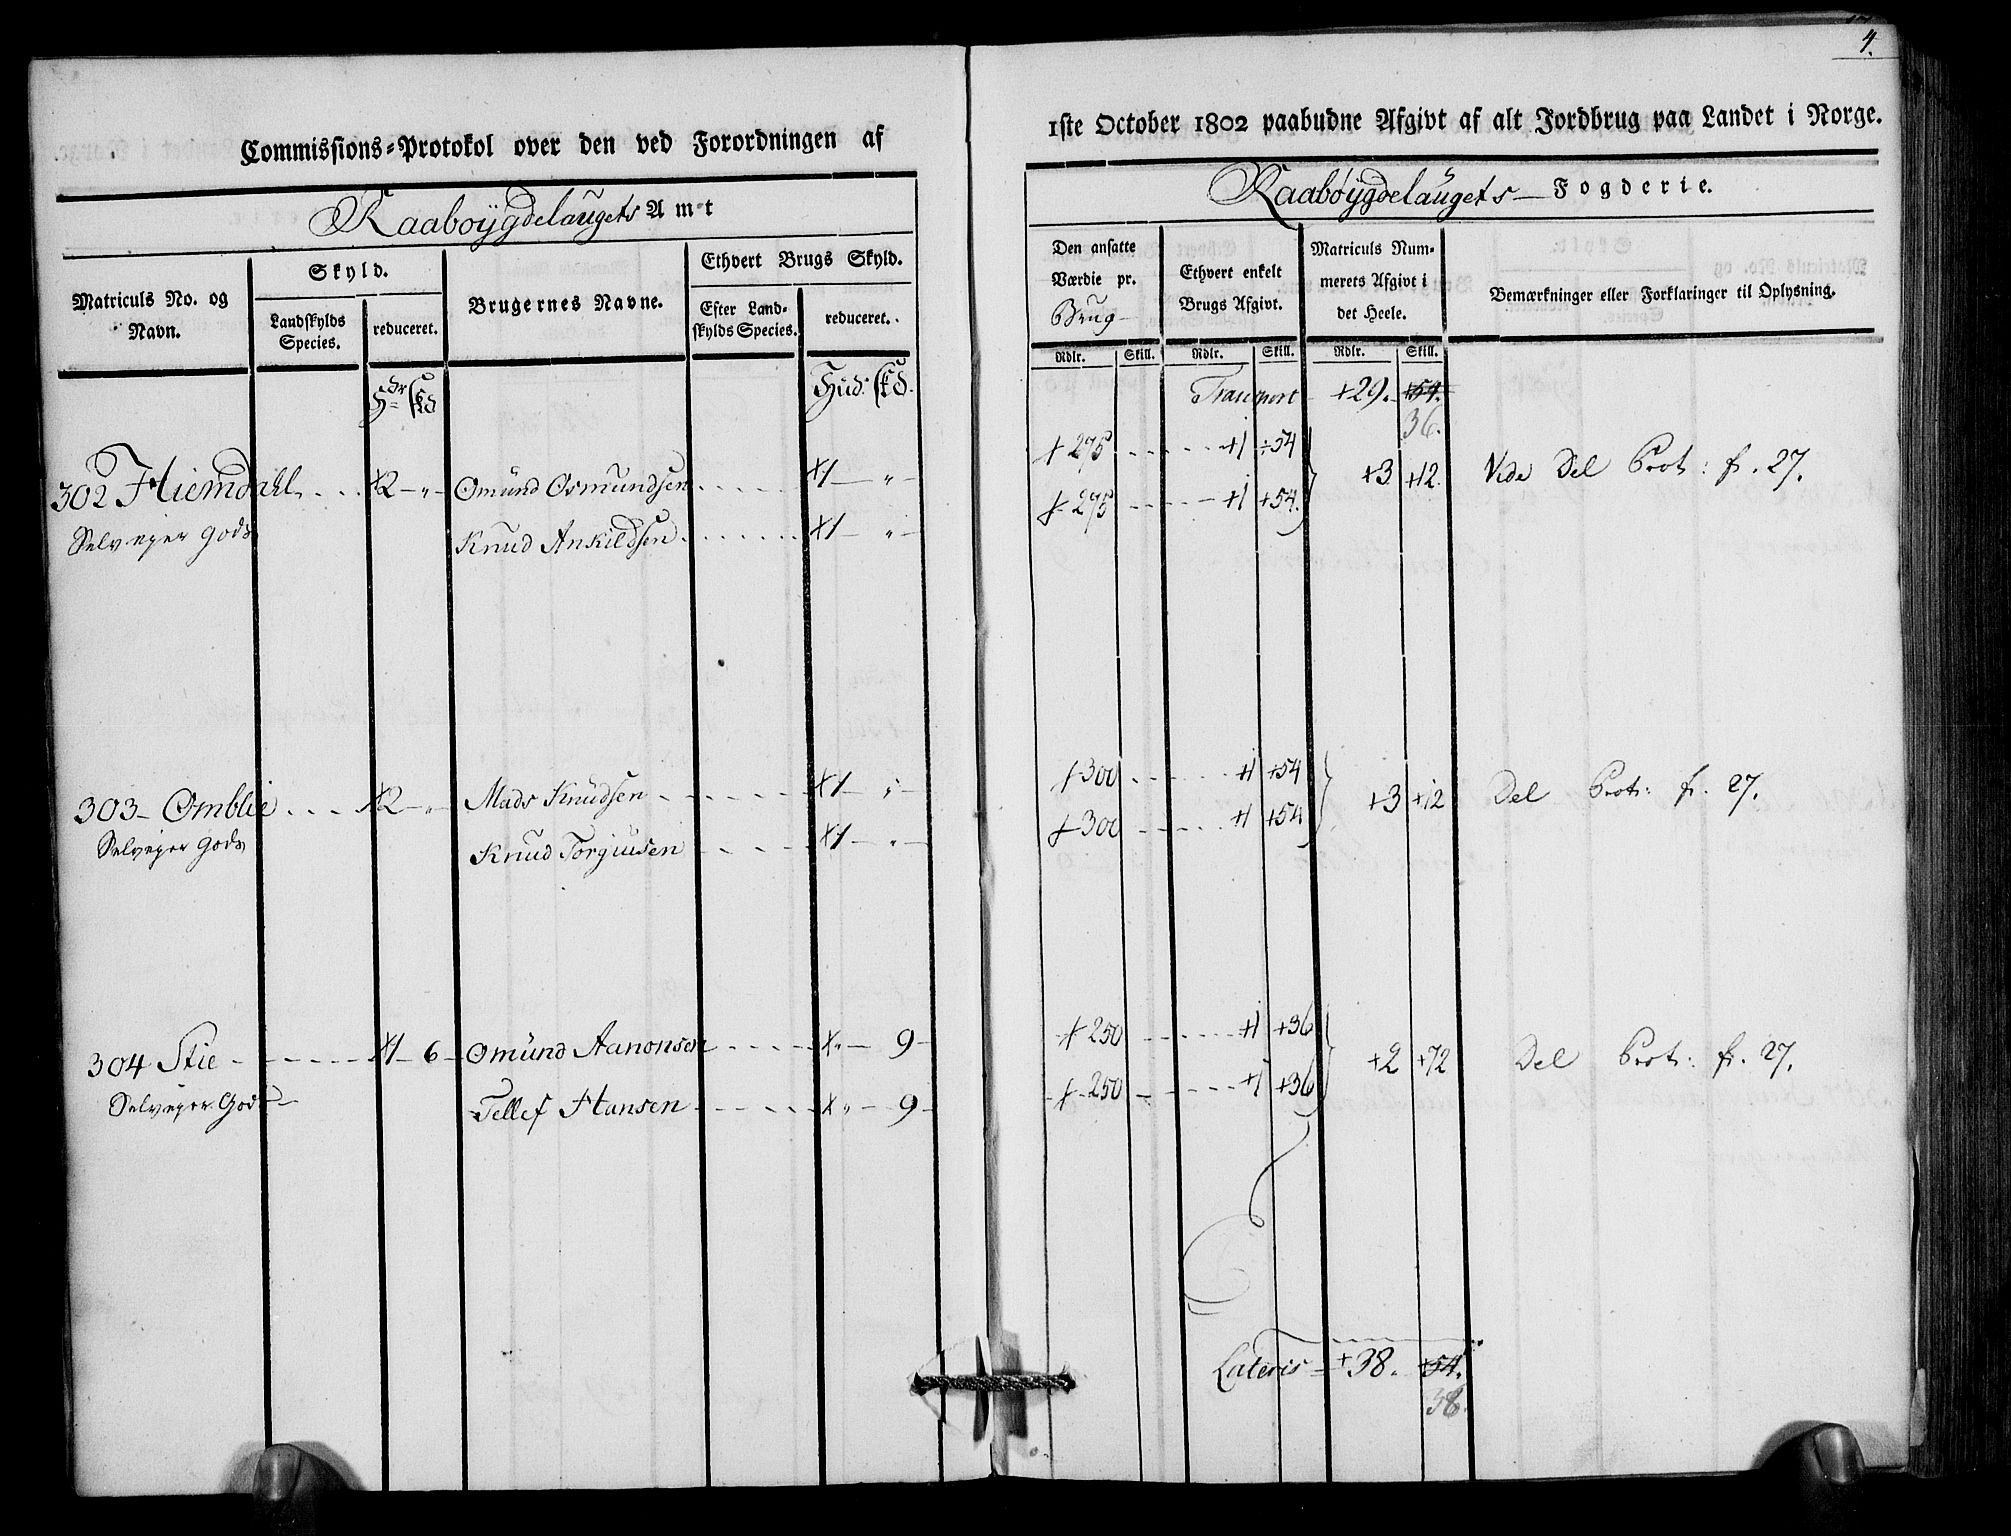 4.
Commissions-Protokol over den ved Forordningen af
1ste October 1802 paabudne Afgivt af alt Jordbrug paa Landet i Norge.
Raaboÿgdelaugets Amt
Raabøÿgdelaugets Fogderie.
Matriculs No. og Navn.
Skyld.
Landskylds Species.
reduceret.
Brugernes Navne.
Ethvert Brugs Skyld.
Efter Landskylds Species.
reduceret.
Den ansatte Værdie pr. Brug
Ethvert enkelt Brugs Afgivt.
Matriculs Nummerets Afgivt i det Heele.
Bemærkninger eller Forklaringer til Oplysning.
Rdlr. Skill. Rdlr. Skill. Rdlr. Skill.
Hud:
Transport +29. +54.
36.
302 Hiemdahl +2 - „ - Omund Osmundsen +1 - „ - + 275 +1 +54 +3 +12. Vide Del Prot: fr. 27.
Selveyer Gods Knud Ankildsen +1 - „ - + 275 +1 +54.
303 - Omblie +2 - „ - Mads Knudsen +1 - „ - + 300 +1 +54 +3 +12 Del Prot: fr. 27.
Selveyer Gods Knud Torgiusen +1 - „ - + 300 +1 +54
304 Stie +1 - 6 - Omund Aanonsen +„ - 9 - + 250 +1 +36 +2 +72 Del Prot: fr. 27.
Selveyer Gods Tellef Hansen +„ - 9 - + 250 +1 +36
Lateris = +38. +54.
36.